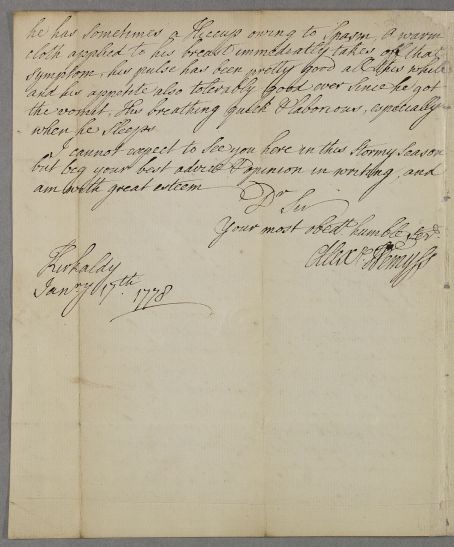 he has sometimes a Hiccup owing to spasm, a warm
cloth applied to his breast immediatly takes off that
symptom, his pulse has been pretty good all this while
and his appetite also tolerably good ever since he got
the vomit. His breathing quick & laborious, especially
when he sleeps
I cannot expect to see you here in this Stormy Season
but beg your best advice & opinion in writing, and
am with great esteem
Dr Sir
Your most obett humble Serv.
Alexr Wemyss
Kirkaldy
Janry 17th
1778